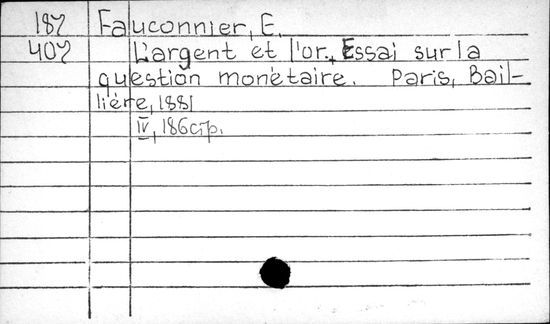 187 Fauconnier, E.
407 L'argent et l'or. Essai sur la
question monétaire. Paris, Bail-
lière, 1881
IV, 186 стр.